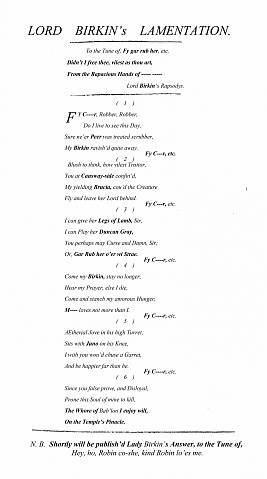 LORD BIRKIN's LAMENTATION.
To the Tune of, Fy gar rub her, etc.
Didn't I free thee, vilest as thou art,
From the Rapacious Hands of ----- -----
Lord Birkin's Rapsodys.
( 1 )
FY C---r, Robber, Robber,
Do I live to see this Day,
Sure ne'er Peer was treated scrubber,
My Birkin ravish'd quite away.
Fy C---r, etc.
( 2 )
Blush to think, how vilest Traitor,
You at Causway-side confin'd,
My yielding Bracia, cou'd the Creature
Fly and leave her Lord behind.
Fy C---r, etc.
( 3 )
I can give her Legs of Lamb, Sir,
I can Play her Duncan Gray,
You perhaps may Curse and Damn, Sir;
Or, Gar Rub her o'er wi Strae.
Fy C---r, etc.
( 4 )
Come my Birkin, stay no longer,
Hear my Prayer, else I die,
Come and stanch my amorous Hunger,
M---- loves not more than I.
Fy C---r, etc.
( 5 )
AEthereal Jove in his high Turret,
Sits with Juno on his Knee,
I wish you won'd chuse a Garret,
And be happier far than he.
Fy C---r, etc.
( 6 )
Since you false prove, and Disloyal,
Prone this Soul of mine to kill,
The Whore of Bab'lon I enjoy will,
On the Temple's Pinacle.
N. B. Shortly will be publish'd Lady Birkin's Answer, to the Tune of,
Hey, ho, Robin co-she, kind Robin lo'es me.